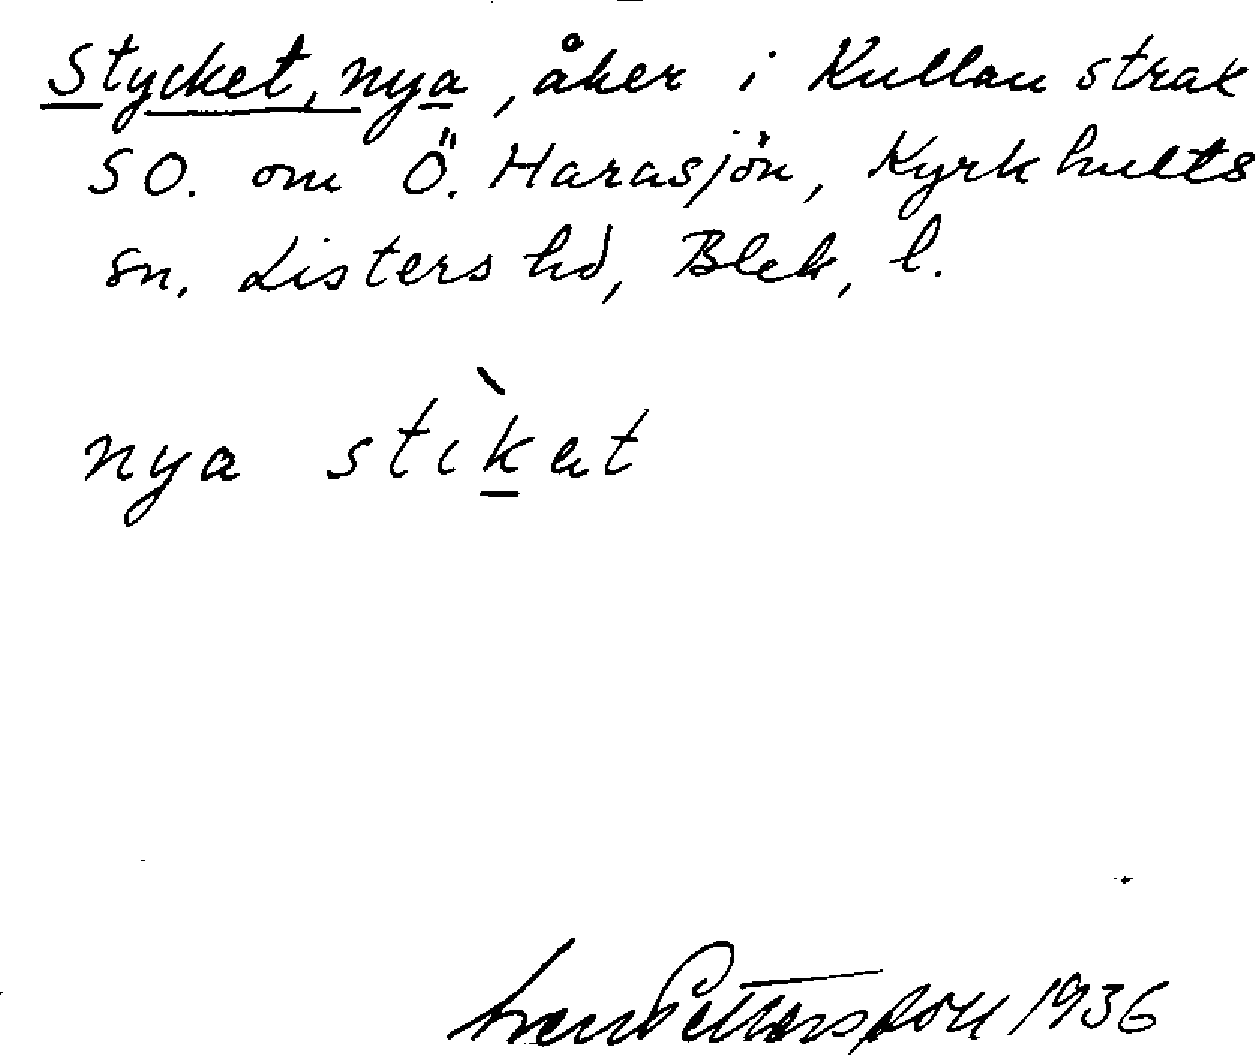 Stycket, nya, åker i Kullan strax
SO. om Ö. Harasjön, Kyrkhults
sn. Listers hd, Blek. l.
nya stìkat
Sven Pettersson 1936